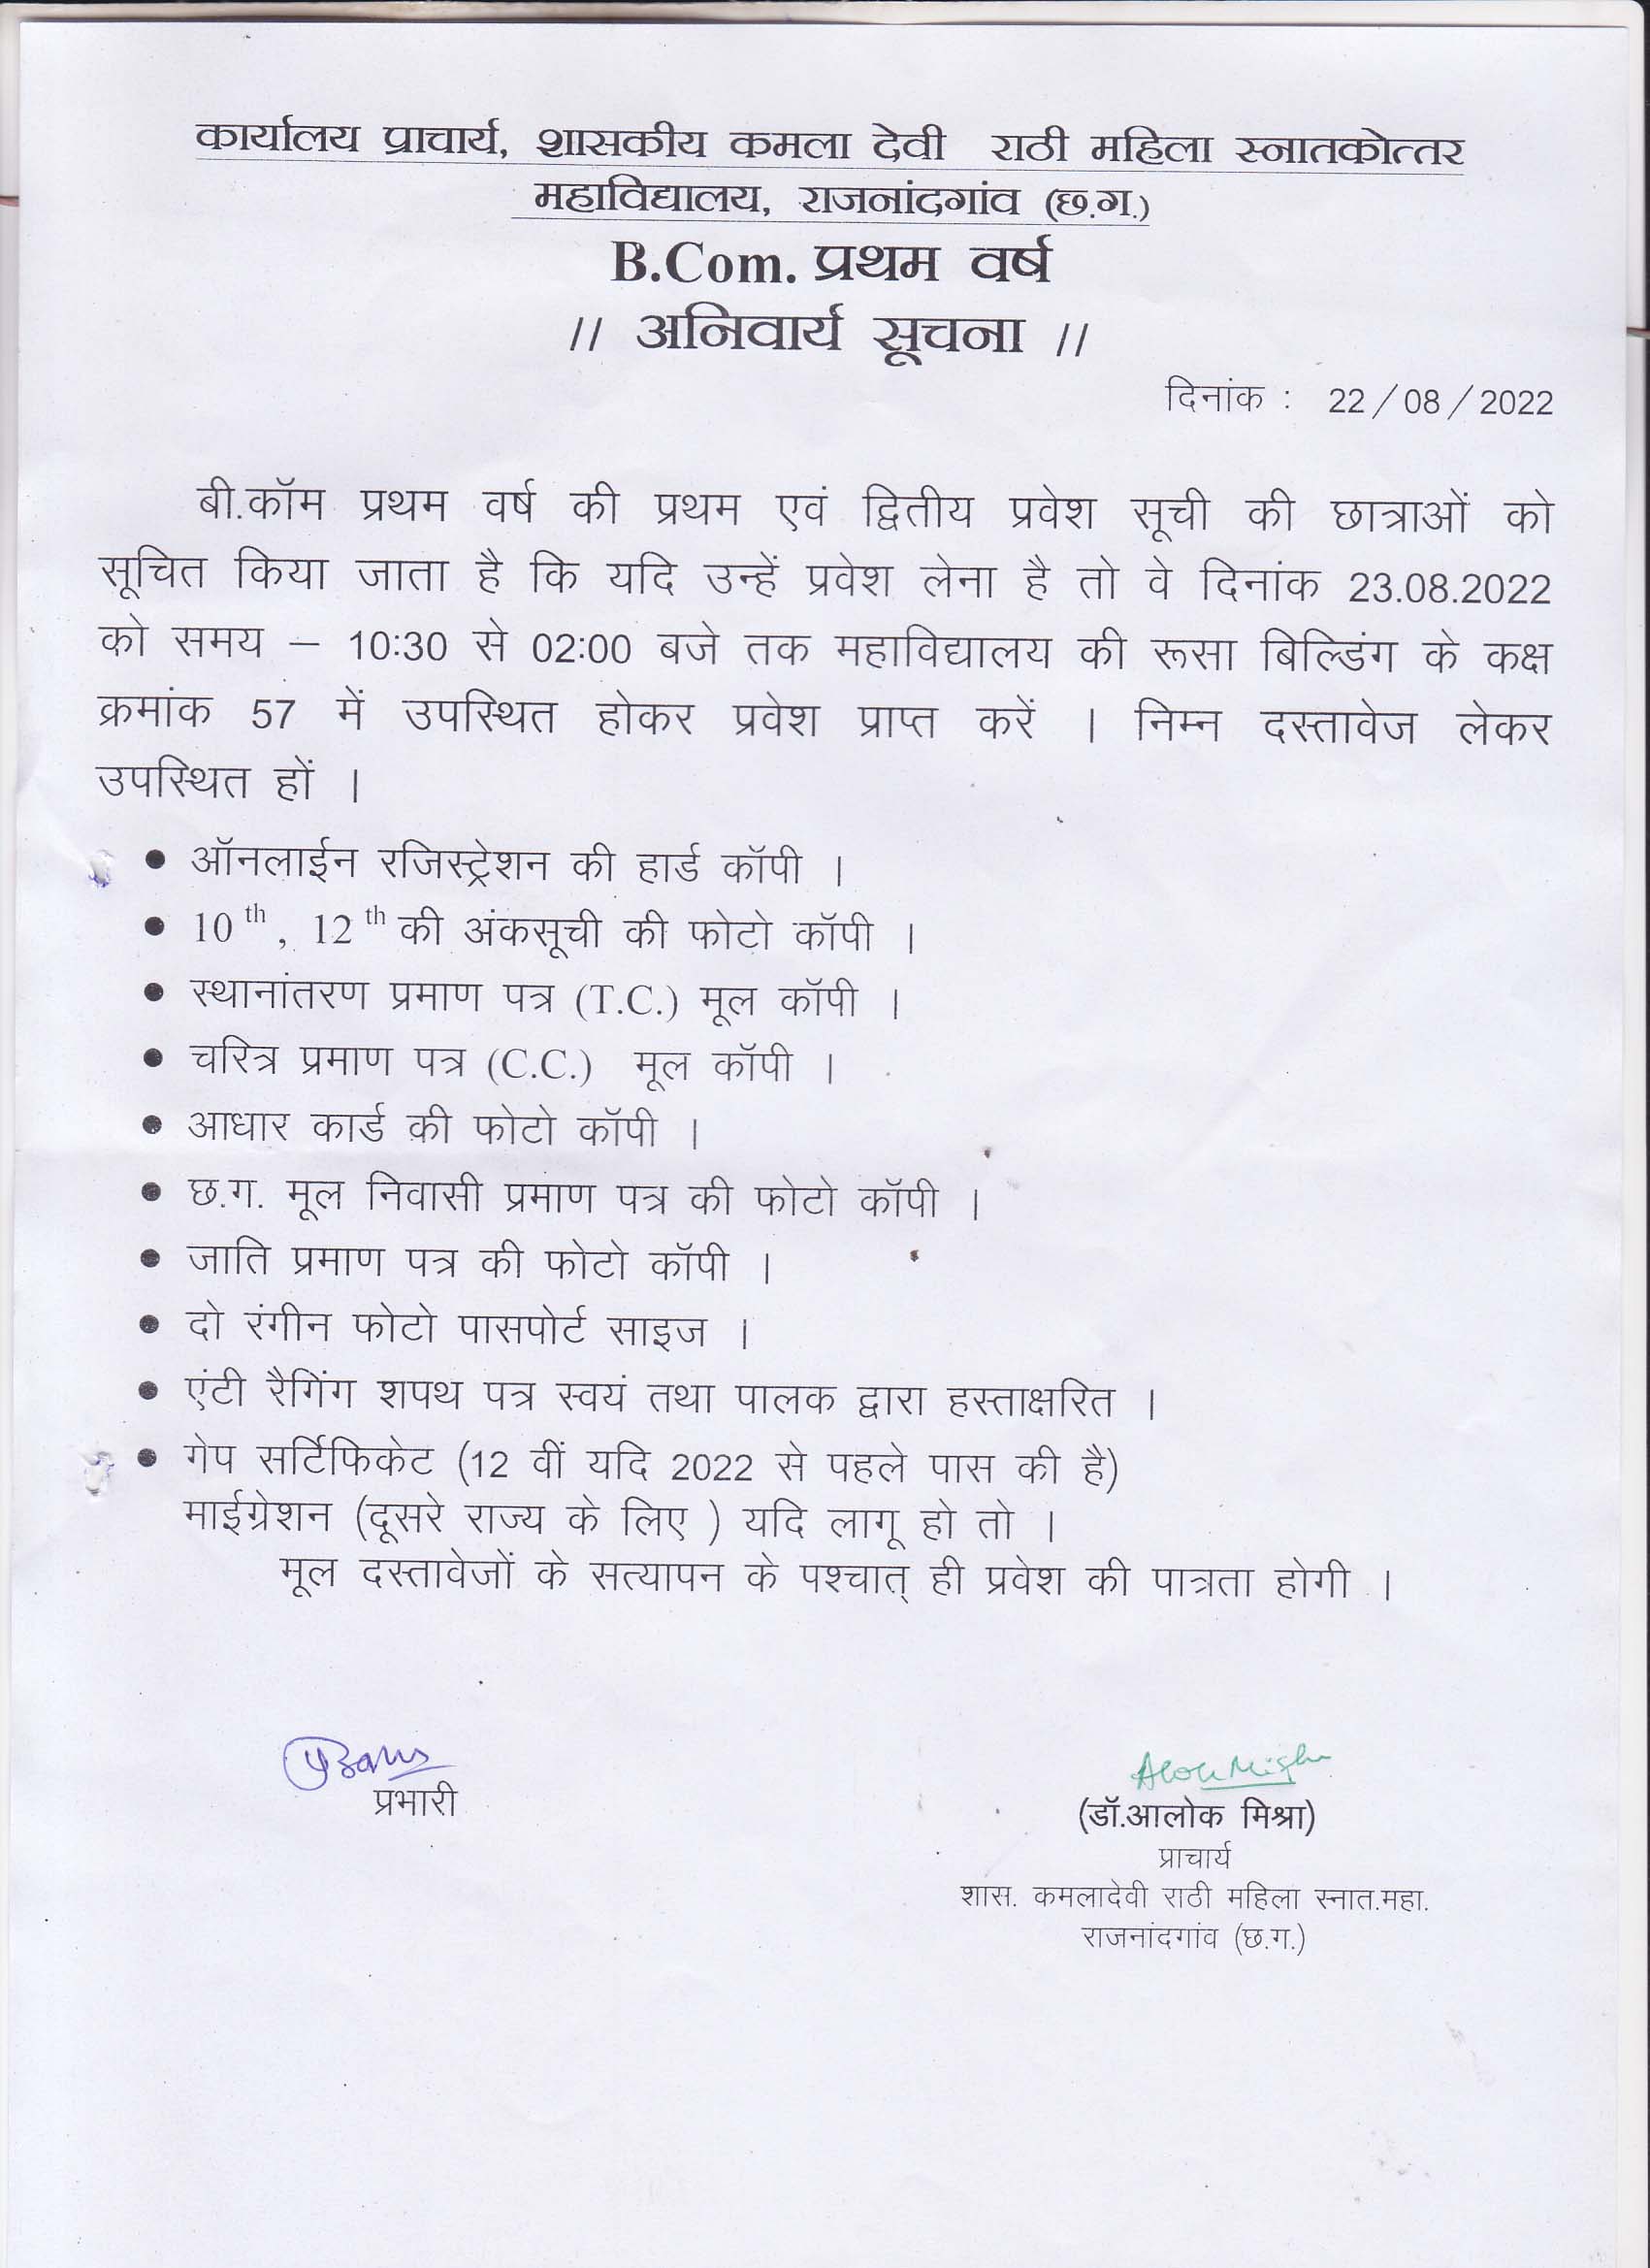 कार्यालय प्राचार्य, शासकीय कमला देवी राठी महिला स्नातकोत्तर
महाविद्यालय, राजनांदगांव (छ.ग.)
B.Com. प्रथम वर्ष
// अनिवार्य सूचना //
दिनांक : 22/08/2022
बी.कॉम प्रथम वर्ष की प्रथम एवं द्वितीय प्रवेश सूची की छात्राओं को
सूचित किया जाता है कि यदि उन्हें प्रवेश लेना है तो वे दिनांक 23.08.2022
को समय – 10:30 से 02:00 बजे तक महाविद्यालय की रूसा बिल्डिंग के कक्ष
क्रमांक 57 में उपस्थित होकर प्रवेश प्राप्त करें । निम्न दस्तावेज लेकर
उपस्थित हों ।
• ऑनलाईन रजिस्ट्रेशन की हार्ड कॉपी ।
• 10 th , 12 th की अंकसूची की फोटो कॉपी ।
• स्थानांतरण प्रमाण पत्र (T.C.) मूल कॉपी ।
• चरित्र प्रमाण पत्र (C.C.) मूल कॉपी ।
• आधार कार्ड की फोटो कॉपी ।
• छ.ग. मूल निवासी प्रमाण पत्र की फोटो कॉपी ।
• जाति प्रमाण पत्र की फोटो कॉपी ।
• दो रंगीन फोटो पासपोर्ट साइज ।
• एंटी रैगिंग शपथ पत्र स्वयं तथा पालक द्वारा हस्ताक्षरित ।
• गेप सर्टिफिकेट (12 वीं यदि 2022 से पहले पास की है)
माईग्रेशन (दूसरे राज्य के लिए ) यदि लागू हो तो ।
मूल दस्तावेजों के सत्यापन के पश्चात् ही प्रवेश की पात्रता होगी ।
प्रभारी
(डॉ.आलोक मिश्रा)
प्राचार्य
शास. कमलादेवी राठी महिला स्नात.महा.
राजनांदगांव (छ.ग.)